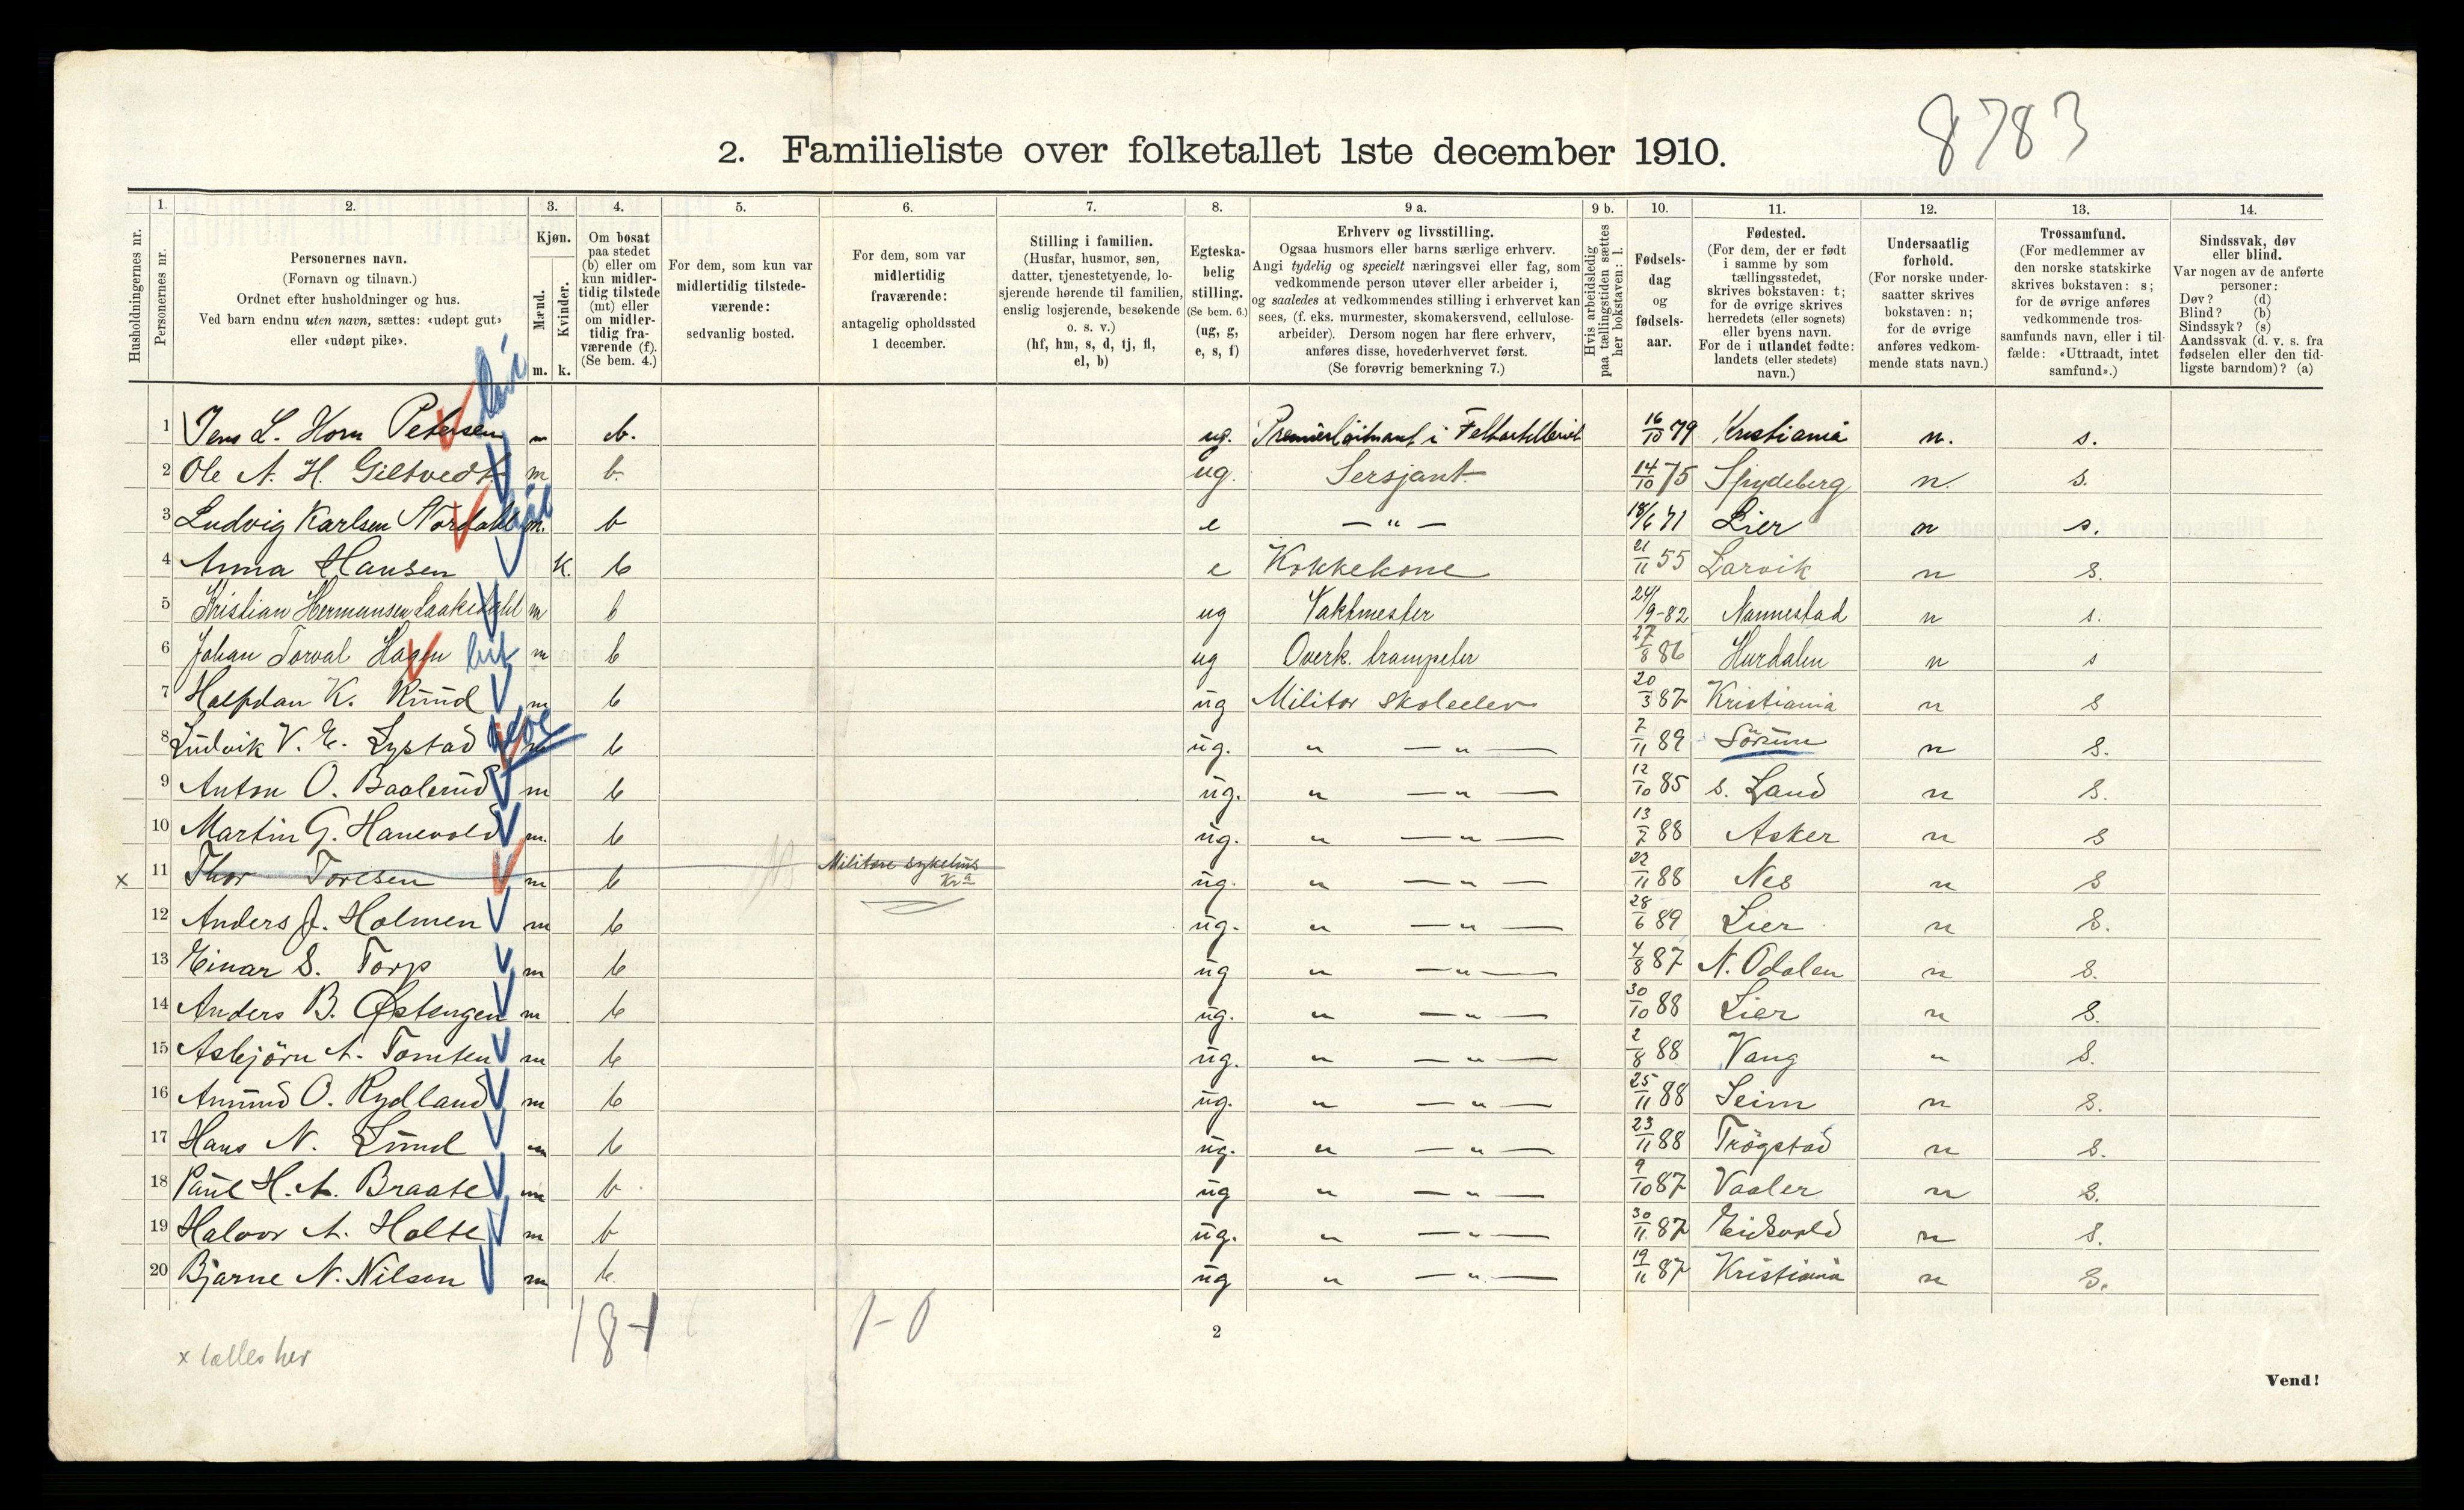 8783
2. Familieliste over folketallet 1ste december 1910.
Husholdningernes nr.
1.
Personernes nr.
2.
Personernes navn.
(Fornavn og tilnavn.)
Ordnet efter husholdninger og hus.
Ved barn endnu uten navn, sættes: «udøpt gut»
eller «udøpt pike».
3.
Kjøn.
Mænd.
Kvinder.
m. k.
4.
Om bosat
paa stedet
(b) eller om
kun midler-
tidig tilstede
(mt) eller
om midler-
tidig fra-
værende (f).
(Se bem. 4.)
5.
For dem, som kun var
midlertidig tilstede-
værende:
sedvanlig bosted.
6.
For dem, som var
midlertidig
fraværende:
antagelig opholdssted
1 december.
7.
Stilling i familien.
(Husfar, husmor, søn,
datter, tjenestetyende, lo-
sjerende hørende til familien,
enslig losjerende, besøkende
o. s. v.)
(hf, hm, s, d, tj, fl,
el, b)
8.
Egteska-
belig
stilling.
(Se bem. 6.)
(ug, g,
e, s, f)
9 a.
Erhverv og livsstilling.
Ogsaa husmors eller barns særlige erhverv.
Angi tydelig og specielt næringsvei eller fag, som
vedkommende person utøver eller arbeider i,
og saaledes at vedkommendes stilling i erhvervet kan
sees, (f. eks. murmester, skomakersvend, cellulose-
arbeider). Dersom nogen har flere erhverv,
anføres disse, hovederhvervet først.
(Se forøvrig bemerkning 7.)
9 b.
Hvis arbeidsledig
paa tællingstiden sættes
her bokstaven: l.
10.
Fødsels-
dag
og
fødsels-
aar.
11.
Fødested.
(For dem, der er født
i samme by som
tællingsstedet,
skrives bokstaven: t;
for de øvrige skrives
herredets (eller sognets)
eller byens navn.
For de i utlandet fødte:
landets (eller stedets)
navn.)
12.
Undersaatlig
forhold.
(For norske under-
saatter skrives
bokstaven: n;
for de øvrige
anføres vedkom-
mende stats navn.)
13.
Trossamfund.
(For medlemmer av
den norske statskirke
skrives bokstaven: s;
for de øvrige anføres
vedkommende tros-
samfunds navn, eller i til-
fælde: «Uttraadt, intet
samfund».)
14.
Sindssvak, døv
eller blind.
Var nogen av de anførte
personer:
Døv? (d)
Blind? (b)
Sindssyk? (s)
Aandssvak (d. v. s. fra
fødselen eller den tid-
ligste barndom)? (a)
1 Jens L. Horn Petersen m b. ug. Premierløitnant i Feltartilleriet 16/10 79 Kristiania n. s.
2 Ole A. H. Giltvedt m b. ug. Sersjant 14/10 75 Spydeberg n. s.
3 Ludvig Karlsen Nordahl m. b e — " — 18/6 71 Lier n s.
4 Anna Hansen K. b e Kokkekone 21/11 55 Larvik n s.
5 Kristian Hermansen m b ug Vaktmester 24/9-82 Nannestad n s.
6 Johan Torval Hagen m b ug Overk. trompeter 27/8 86 Hurdalen n s
7 Halfdan K. Ruud m b ug Militær skoleelev 20/3 87 Kristiania n s
8 Ludvik V. E. Lystad m b ug. " — " — 7/11 89 Sørum n s.
9 Anton O. Baalerud m b ug. " — " — 12/10 85 s. Land n s.
10 Martin G. Hanevold m. b ug. " — " — 13/7 88 Asker n s
x 11 Thor Toresen m b Militære sykehus Kr.a ug. " — " — 22/11 88 Nes n s
12 Anders J. Holmen m b ug. " — " — 28/6 89 Lier n s.
13 Einar S. Torp m b ug " — " — 4/8 87 N. Odalen n s.
14 Anders B. Østengen m b ug. " — " — 30/10 88 Lier n s.
15 Asbjörn A. Tomten m b ug. " — " — 2/8 88 Vang " s.
16 Amund O. Rydland m b ug. " — " — 25/11 88 Seim n s.
17 Hans N. Lund m b ug. " — " — 23/11 88 Trögstad n s.
18 Paul H. A. Braate m b ug " — " — 9/10 87 Vaaler n s.
19 Halvor A. Holte m b ug. " — " — 30/11 87 Eidsvold n s.
20 Bjarne N. Nilsen m b. ug " — " — 19/11 87 Kristiania n s.
18-1 1-0
2
x tælles her
Vend!